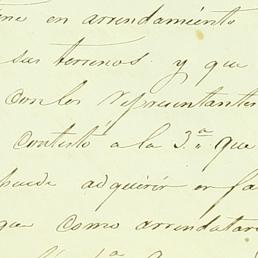 tiene en arrendamiento
sus terrenos y que
con los representantes
contestó a la 3.ª que
puede adquirir en fa
que como arrendatari